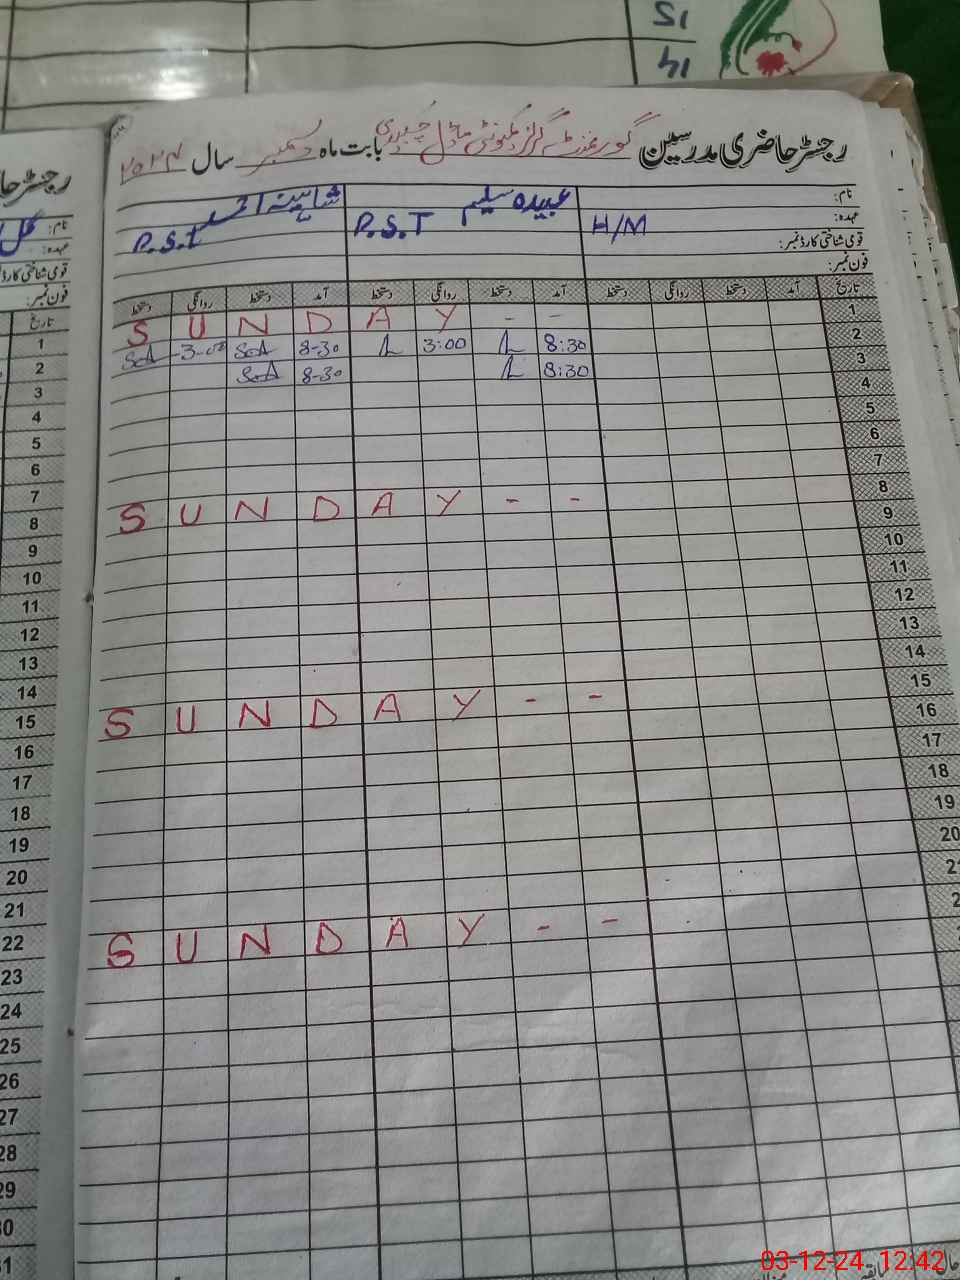 15
14
رجسٹر حاضری مدرسین گورنمنٹ گرلز کمیونٹی ماڈل بابت ماہ دسمبر سال ۲۰۲۴
نام: عبیدہ سلیم شاہینہ
عہدہ: H/M P.S.T P.S.T
قومی شناختی کارڈ نمبر:
فون نمبر:
تاریخ آمد دستخط روانگی دستخط آمد دستخط روانگی دستخط آمد دستخط روانگی دستخط
1 S U N D A Y - -
2 8:30 3:00 8-30
3 8:30 8-30
4
5
6
7
8 S U N D A Y - -
9
10
11
12
13
14
15 S U N D A Y - -
16
17
18
19
20
21
S U N D A Y - -
رجسٹر حا
نام:
عہدہ:
قومی شناختی کارڈ
فون نمبر:
تاریخ
1
2
3
4
5
6
7
8
9
10
11
12
13
14
15
16
17
18
19
20
21
22
23
24
25
26
27
28
29
30
31
03-12-24 12:42